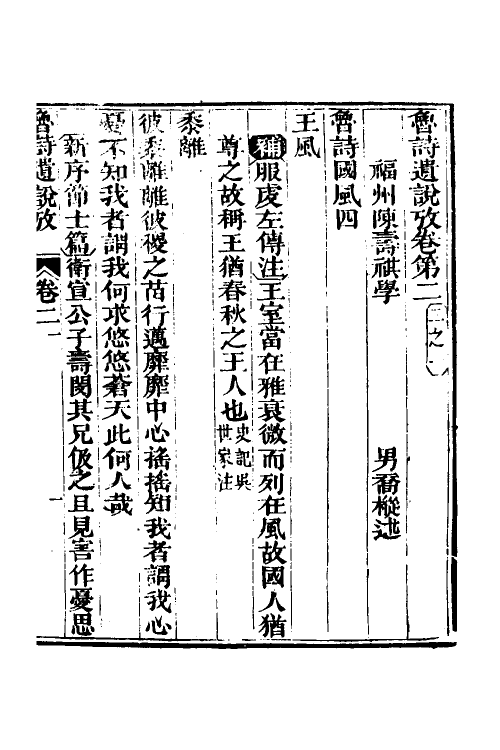 魯詩遺說攷卷第二 二之一
福州陳壽祺學 男喬樅述
魯詩國風四
王風
補服虔左傳注王室當在雅衰微而列在風故國人猶
尊之故稱王猶春秋之王人也史記吳世家注
黍離
彼黍離離彼稷之苗行邁靡靡中心搖搖知我者謂我心
憂不知我者謂我何求悠悠蒼天此何人哉
新序節士篇衛宣公子壽閔其兄伋之且見害作憂思
魯詩遺說攷 卷二 一